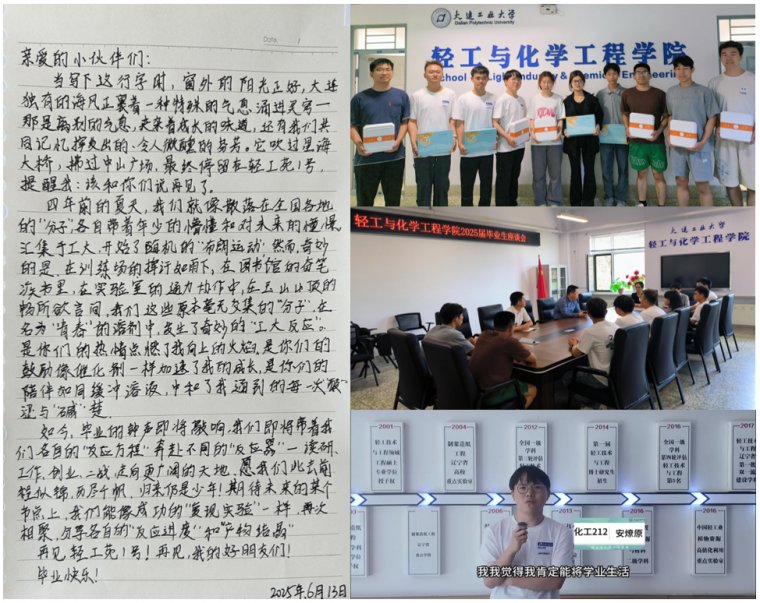 Date
亲爱的小伙伴们:
当写下这行字时,窗外的阳光正好,大连
独有的海风正裹着一种特殊的气息涌进灵穹一
那是离别的气息,夹杂着成长的味道,还有我们共
同记忆挥发出的、令人微醺的芬芳。它吹过星海
大桥,拂过中山广场,最终停留在轻工苑1号,
提醒我:该和你们说再见了。
四年前的夏天,我们就像散落在全国各地
的“分子”,各自带着年少的懵懂和对未来的憧憬
汇集于工大,开始了随机的“布朗运动”然而,奇妙
的是,在训练场的挥汗如雨下,在图书馆的奋笔
疾书里,在实验室的通力协作中,在 山山顶的
畅所欲言间,我们这些原本毫无交集的“分子”,在
名为“青春”的溶剂中,发生了奇妙的“工大反应”。
是你们的热情点燃了我向上的火焰,是你们的
鼓励像催化剂一样加速了我的成长,是你们的
陪伴如同缓冲溶液,中和了我遇到的每一次“酸”
涩与“碱”楚。
如今,毕业的钟声即将敲响,我们即将带着我
们各自的“反应方程”奔赴不同的“反应器”一读研、
工作、创业、二战,走向更广阔的天地。愿我们此去前
程似锦,历尽千帆,归来仍是少年!期待未来的某个
节点上,我们能像成功的“重现实验”一样,再次
相聚,分享各自的“反应进度”和“产物结晶”
再见,轻工苑1号!再见,我的好朋友们!
毕业快乐!
2025年6月13日
大连工业大学
Dalian Polytechnic University
轻工与化学工程学院
School of Light Industry & Chemical Engineering
轻工与化学工程学院2025届毕业生座谈会
大连工业大学
轻工与化学工程学院
2001
2004
2012
2014
2016
2017
轻工技术
与工程领域
工程硕士
专业学位
授予权
制浆造纸工程
辽宁省
高校
重点实验室
全国一级
学科
第三轮评估
轻工技术
第一届
轻工技术
与工程
博士研究生
招生
全国一级
学科
第四轮评估
轻工技术与
工程
第3名
2003
2005
2016
2016
制浆造纸工程
辽宁省
重点学科
中国轻工业
植物资源
高值化利用
重点实验室
化工212 安燎原
我我觉得我肯定能将学业生活